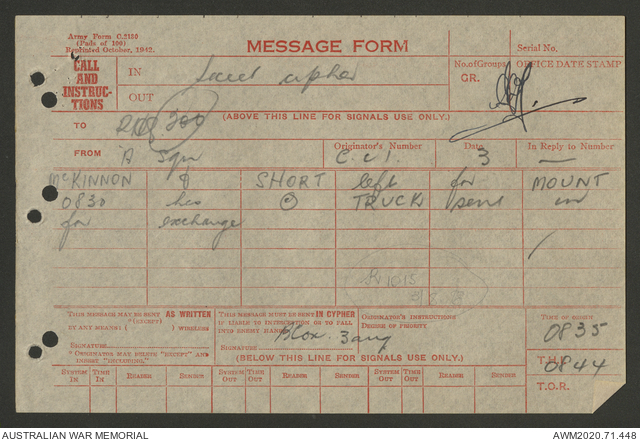 Army Form C.2130
(Pads of 100)
Reprinted October, 1942.
MESSAGE FORM
Serial No.
CALL
AND
INSTRUC-
TIONS
IN
OUT
No. of Groups
GR.
OFFICE DATE STAMP
(ABOVE THIS LINE FOR SIGNALS USE ONLY.)
TO
FROM
A Sqn
Originator's Number
Date
3
In Reply to Number
—
McKINNON & SHORT left for MOUNT
0830 TRUCK sent in
for exchange
1015
THIS MESSAGE MAY BE SENT AS WRITTEN
"(EXCEPT)
BY ANY MEANS ( ) WIRELESS
SIGNATURE
"ORIGINATOR MAY DELETE "EXCEPT" AND
INSERT "INCLUDING."
THIS MESSAGE MUST BE SENT IN CYPHER
IF LIABLE TO INTERCEPTION OR TO FALL
INTO ENEMY HANDS.
SIGNATURE
ORIGINATOR'S INSTRUCTIONS
DEGREE OF PRIORITY
TIME OF ORIGIN
0835
T.H.I.
0844
T.O.R.
(BELOW THIS LINE FOR SIGNALS USE ONLY.)
SYSTEM IN TIME IN READER SENDER SYSTEM OUT TIME OUT READER SENDER SYSTEM OUT TIME OUT READER SENDER
AUSTRALIAN WAR MEMORIAL
AWM2020.71.448